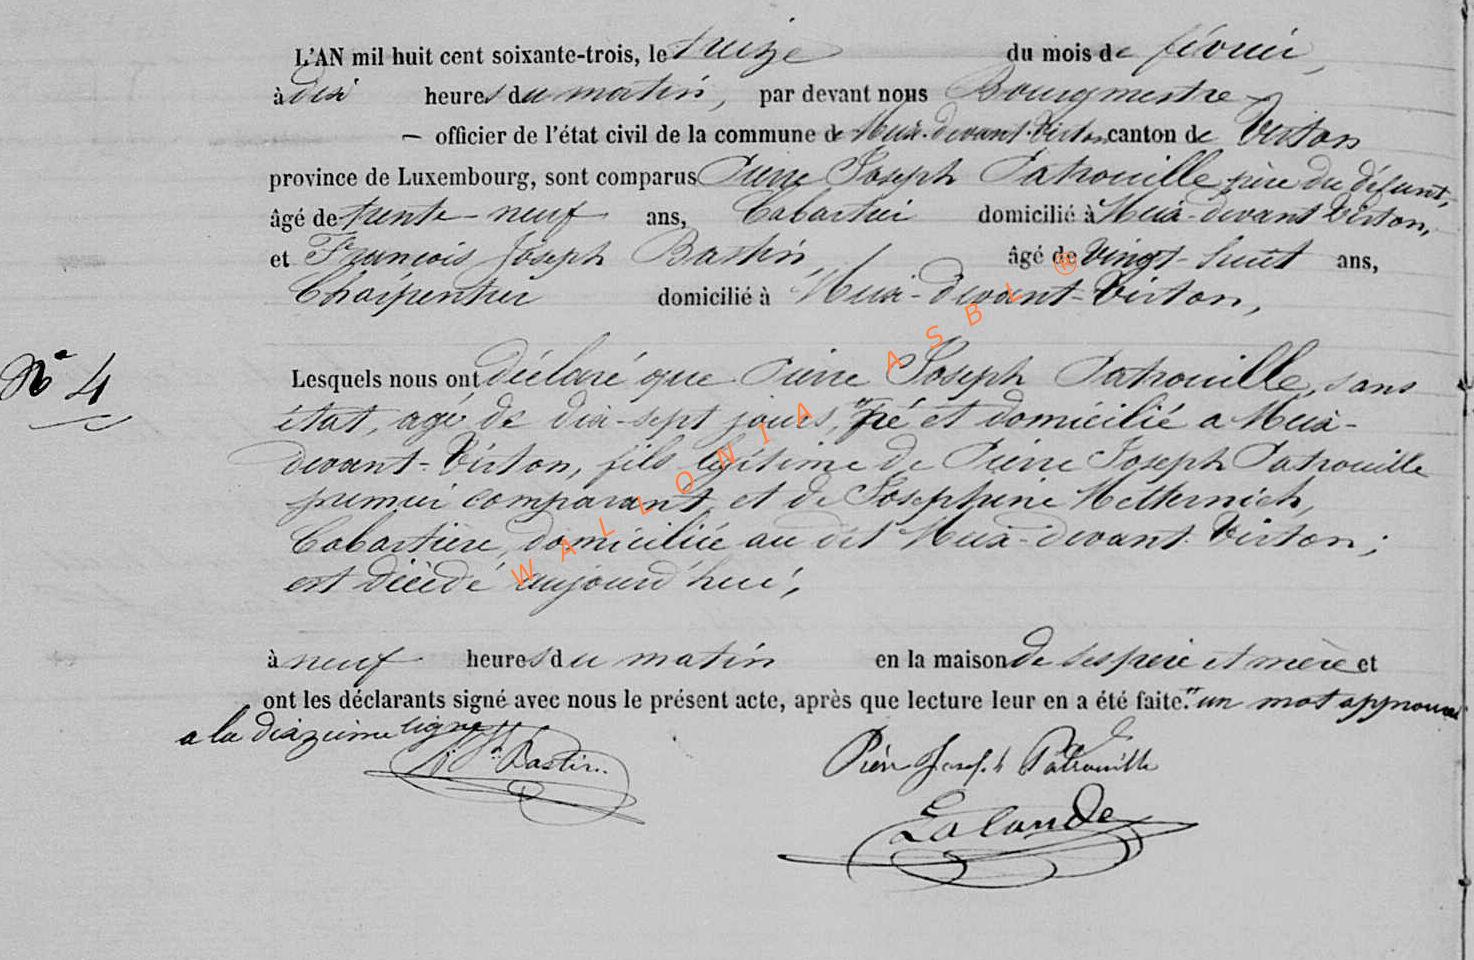 L'AN mil huit cent soixante-trois, le treize du mois de février,
à dix heures du matin, par devant nous Bourgmestre
– officier de l'état civil de la commune de Meix-devant-Virton canton de Virton
province de Luxembourg, sont comparus Pierre Joseph Patrouille père du défunt,
âgé de trente-neuf ans, Cabartier domicilié à Meix-devant Virton,
et François Joseph Bastin, âgé de vingt-huit ans,
Charpentier domicilié à Meix-devant-Virton,
N° 4
Lesquels nous ont déclaré que Pierre Joseph Patrouille, sans
état, agé de dix-sept jours, "né et domicilié a Meix-
devant-Virton, fils légitime de Pierre Joseph Patrouille
premier comparant et de Josephine Metternich,
Cabartière, domiciliée au dit Meix-devant Virton;
est décédé aujourd'hui,
à neuf heures du matin en la maison de ses père et mère et
ont les déclarants signé avec nous le présent acte, après que lecture leur en a été faite." un mot approuvé
a la dixzieme ligne
Bastin
Pière Josef. Patrouille
Lalande
WALLONIA ASBL ®